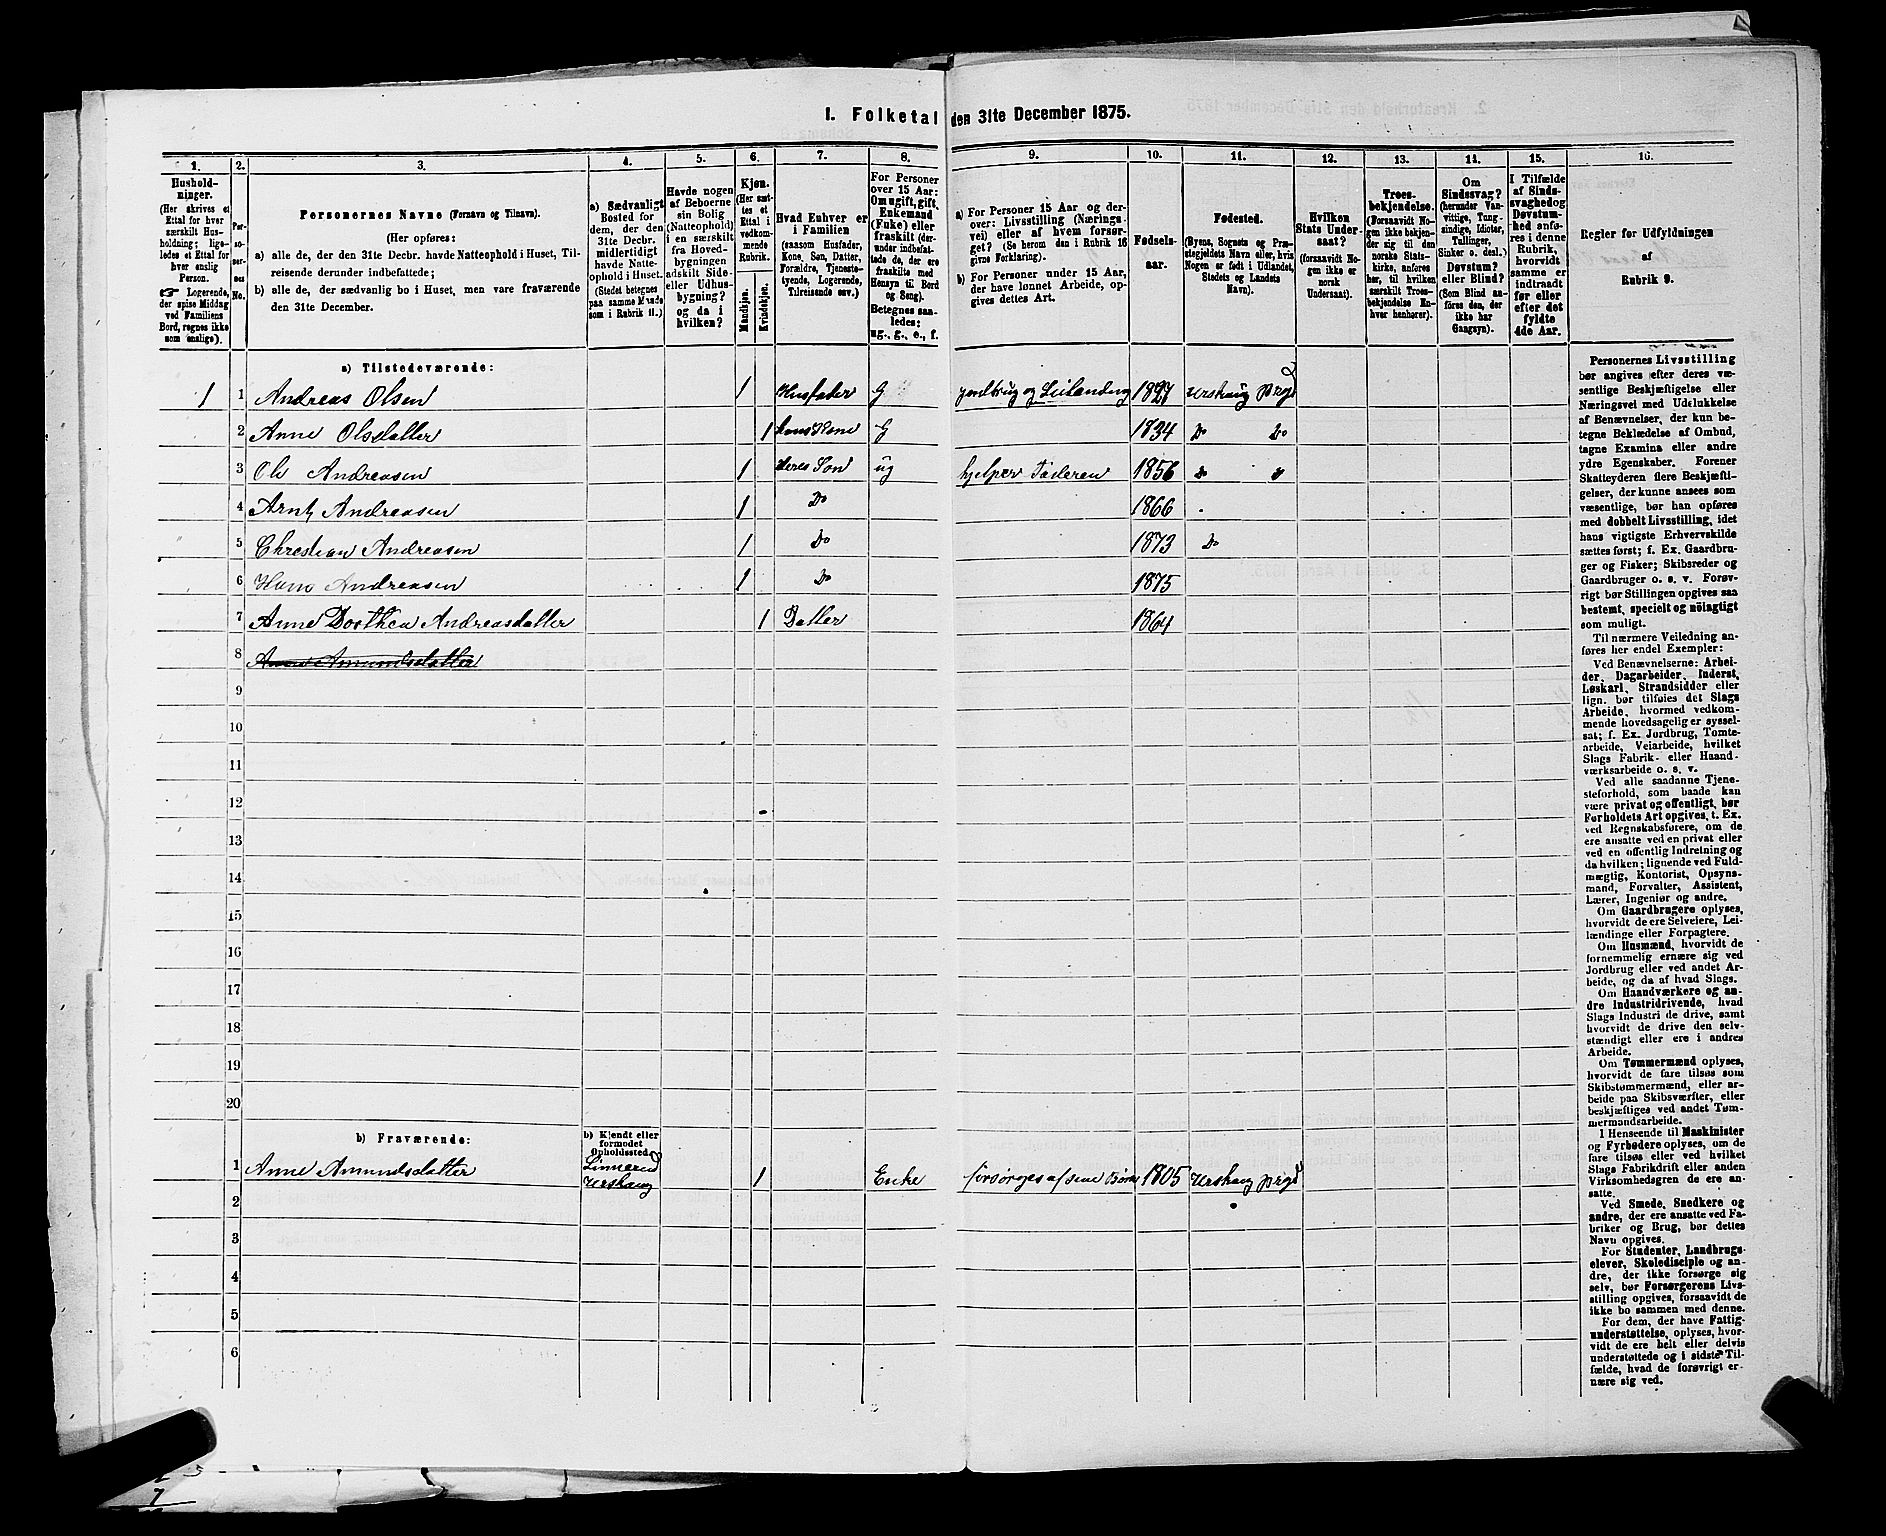 I. Folketal den 31te December 1875.
1. 2. 3. 4. 5. 6. 7. 8. 9. 10. 11. 12. 13. 14. 15. 16.
Husholdninger.
(Her skrives et
Ettal for hver
særskilt Husholdning;
ligeledes et Ettal for
hver enslig
Person.
☞ Logerende,
der spise Middag
ved Familiens
Bord, regnes ikke
som enslige).
Personernes No.
Personernes Navne (Fornavn og Tilnavn).
(Her opføres:
a) alle de, der den 31te Decbr. havde Natteophold i Huset, Tilreisende derunder indbefattede;
b) alle de, der sædvanlig bo i Huset, men vare fraværende
den 31te December.
a) Sædvanligt
Bosted for
dem, der den
31te Decbr.
midlertidigt
havde Natteophold i Huset.
(Stedet betegnes
paa samme Maade
som i Rubrik 11.)
Havde nogen
af Beboerne
sin Bolig
(Natteophold)
i en særskilt
fra Hovedbygningen
adskilt Side-
eller Udhusbygning?
og da i
hvilken?
Kjøn.
(Her sættes et
Ettal i
vedkommende
Rubrik.
Mandkjøn.
Kvindekjøn.
Hvad Enhver er
i Familien
(saasom Husfader,
Kone, Søn, Datter,
Forældre, Tjenestetyende, Logerende,
Tilreisende osv.)
For Personer
over 15 Aar:
Om ugift, gift,
Enkemand
(Enke) eller
fraskilt (derunder indbefattede de, der ere
fraskilte med
Hensyn til Bord
og Seng).
Betegnes saaledes:
ug., g., e., f.
a) For Personer 15 Aar og derover: Livsstilling (Næringsvei) eller af hvem forsørget? (Se herom den i Rubrik 16
givne Forklaring).
b) For Personer under 15 Aar,
der have lønnet Arbeide, opgives dettes Art.
Fødselsaar.
Fødested.
(Byens, Sognets og Præstegjeldets Navn eller, hvis
Nogen er født i Udlandet,
Stedets og Landets
Navn).
Hvilken
Stats Undersaat?
(forsaavidt Nogen ikke er
norsk
Undersaat).
Troesbekjendelse.
(Forsaavidt Nogen ikke bekjender sig til den
norske Statskirke, anføres
her, til hvilken
særskilt Troesbekjendelse Enhver henhører).
Om
Sindssvag?
(herunder Vanvittige, Tungsindige, Idioter,
Tullinger,
Sinker o. desl.)
Døvstum?
eller Blind?
(Som Blind anføres den, der
ikke har
Gangsyn).
I Tilfælde
af Sindssvaghed og
Døvstumhed anføres i denne
Rubrik,
hvorvidt
samme er
indtraadt
før eller
efter det
fyldte
4de Aar.
Regler for Udfyldningen
af
Rubrik 9.
a) Tilstedeværende:
1 1 Andreas Olsen 1 Husfader G Jordbrug og Leilænding 1827 Urskaug Prgd
2 Anne Olsdatter 1 hans Kone G 1834 Do Do
3 Ole Andreasen 1 deres Søn ug hjelper Faderen 1856 Do Do
4 Arnt Andreasen 1 Do 1866
5 Christian Andreasen 1 Do 1873 Do
6 Hans Andreasen 1 Do 1875
7 Anne Dorthea Andreasdatter 1 Datter 1864
8 Anne Amundsdatter
9
10
11
12
13
14
15
16
17
18
19
20
b) Fraværende:
b) Kjendt eller
formodet
Opholdssted.
1 Anne Amundsdatter Linnerud Urskaug 1 Enke forsørges af sine Børn 1805 Urskaug Prgd
2
3
4
5
6
Personernes Livsstilling
bør angives efter deres væsentlige Beskjæftigelse eller
Næringsvei med Udelukkelse
af Benævnelser, der kun betegne Beklædelse af Ombud,
tagne Examina eller andre
ydre Egenskaber. Forener
Skatteyderen flere Beskjæftigelser, der kunne ansees som
væsentlige, bør han opføres
med dobbelt Livsstilling, idet
hans vigtigste Erhvervskilde
sættes først; f. Ex. Gaardbruger og Fisker; Skibsreder og
Gaardbruger o. s. v. Forøvrigt bør Stillingen opgives saa
bestemt, specielt og nöiagtigt
som muligt.
Til nærmere Veiledning anføres her endel Exempler:
Ved Benævnelserne: Arbeider, Dagarbeider, Inderst,
Løskarl, Strandsidder eller
lign. bør tilføies det Slags
Arbeide, hvormed vedkommende hovedsagelig er sysselsat; f. Ex. Jordbrug, Tomtearbeide, Veiarbeide, hvilket
Slags Fabrik- eller Haandværksarbeide o. s. v.
Ved alle saadanne Tjenesteforhold, som baade kan
være privat og offentligt, bør
Forholdets Art opgives, t. Ex.
ved Regnskabsførere, om de
ere ansatte ved en privat eller
ved en offentlig Indretning og
da hvilken; lignende ved Fuldmægtig, Kontorist, Opsynsmand, Forvalter, Assistent,
Lærer, Ingeniør og andre.
Om Gaardbrugere oplyses,
hvorvidt de ere Selveiere, Leilændinge eller Forpagtere.
Om Husmænd, hvorvidt de
fornemmelig ernære sig ved
Jordbrug eller ved andet Arbeide, og da af hvad Slags.
Om Haandværkere og andre Industridrivende, hvad
Slags Industri de drive, samt
hvorvidt de drive den selvstændigt eller ere i andres
Arbeide.
Om Tømmermænd oplyses,
hvorvidt de fare tilsøs som
Skibstømmermænd, eller arbeide paa Skibsværfter, eller
beskjæftiges ved andet Tømmermandsarbeide.
I Henseende til Maskinister
og Fyrbødere oplyses, om de
fare tilsøs eller ved hvilket
Slags Fabrikdrift eller anden
Virksomhedsgren de ere ansatte.
Ved Smede, Snedkere og
andre, der ere ansatte ved Fabriker og Brug, bør dettes
Navn opgives.
For Studenter, Landbrugselever, Skoledisciple og andre, der ikke forsørge sig
selv, bør Forsørgerens Livsstilling opgives, forsaavidt de
ikke bo sammen med denne.
For dem, der have Fattigunderstøttelse, oplyses, hvorvidt de ere helt eller delvis
understøttede og i sidste Tilfælde, hvad de forøvrigt ernære sig ved.